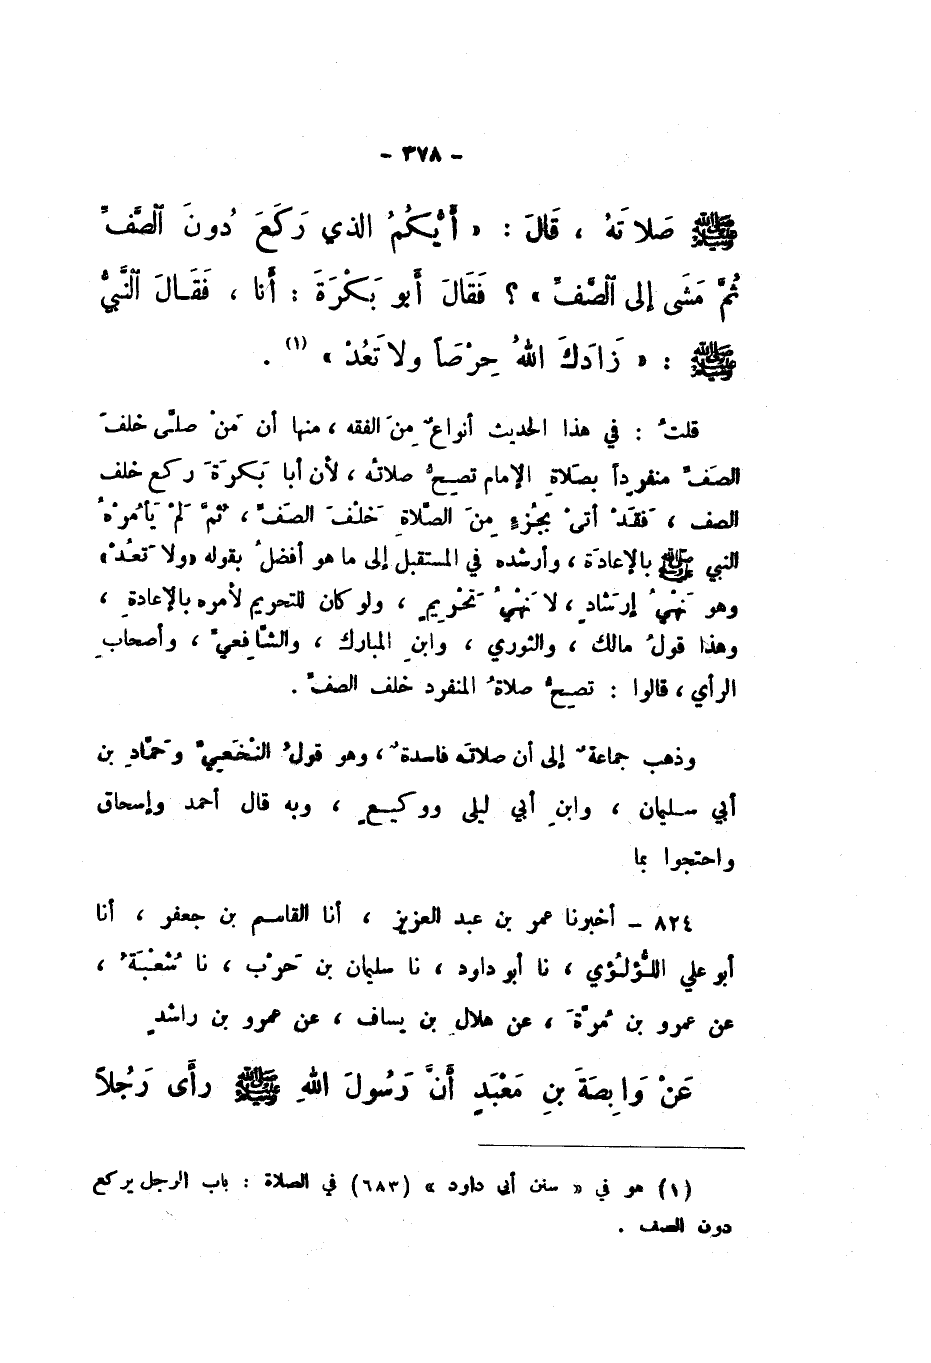 - ٣٧٨ -
ﷺ صَلاتَهُ ، قَالَ : « أَيُّكُمُ الذي رَكَعَ دُونَ الصَّفِّ
ثُمَّ مَشَى إلى الصَّفِّ » ؟ فَقَالَ أَبو بَكْرَةَ : أَنا ، فَقَالَ النَّبيُّ
ﷺ : « زَادَكَ اللهُ حِرْصَاً ولا تَعُدْ » (١) .
قلتُ : في هذا الحديث أنواعٌ مِنَ الفقه ، منها أن مَنْ صلَّى خلفَ
الصَفِّ منفرِداً بصَلاةِ الإمام تصِحُّ صلاتُه ، لأن أبا بَكرَةَ ركع خلف
الصف ، فقَدْ أتىْ بجُزءٍ مِنَ الصَّلاةِ خَلْفَ الصَفِّ ، ثمَّ لَمْ يَأمُرْهُ
النبي ﷺ بالإعادَة ، وأرشده في المستقبل إلى ما هو أفضلُ بقوله «ولا تَعُدْ»
وهو نَهْيُ إرشادٍ ، لا نَهْيُ تَحْرِيمٍ ، ولو كان للتحريم لأمره بالإعادةِ ،
وهذا قولُ مالك ، والثوري ، وابنِ المبارك ، والشَّافِعيِّ ، وأصحابِ
الرأي ، قالوا : تصِحُّ صلاةُ المنفرد خلف الصفِّ .
وذهب جماعةٌ إلى أن صلاتَه فاسدةٌ ، وهو قولُ النَّخَعيِّ وحَمَّادِ بن
أبي سليمان ، وابنِ أبي ليلى ووكيعٍ ، وبه قال أحمد وإسحاق
واحتجوا بما
٨٢٤ – أخبرنا عمر بن عبد العزيز ، أنا القاسم بن جعفر ، أنا
أبو علي اللُّؤلُؤي ، نا أبو داود ، نا سليمان بن حَرْب ، نا شُعْبَةُ ،
عن عمرو بن مُرَّةَ ، عن هلال بن يساف ، عن عمرو بن راشدٍ
عَنْ وَابِصَةَ بنِ مَعْبَدٍ أَنَّ رَسُولَ اللهِ ﷺ رأَى رَجُلاً
(١) هو في « سنن أبي داود » (٦٨٣) في الصلاة : باب الرجل يركع
دون الصف .